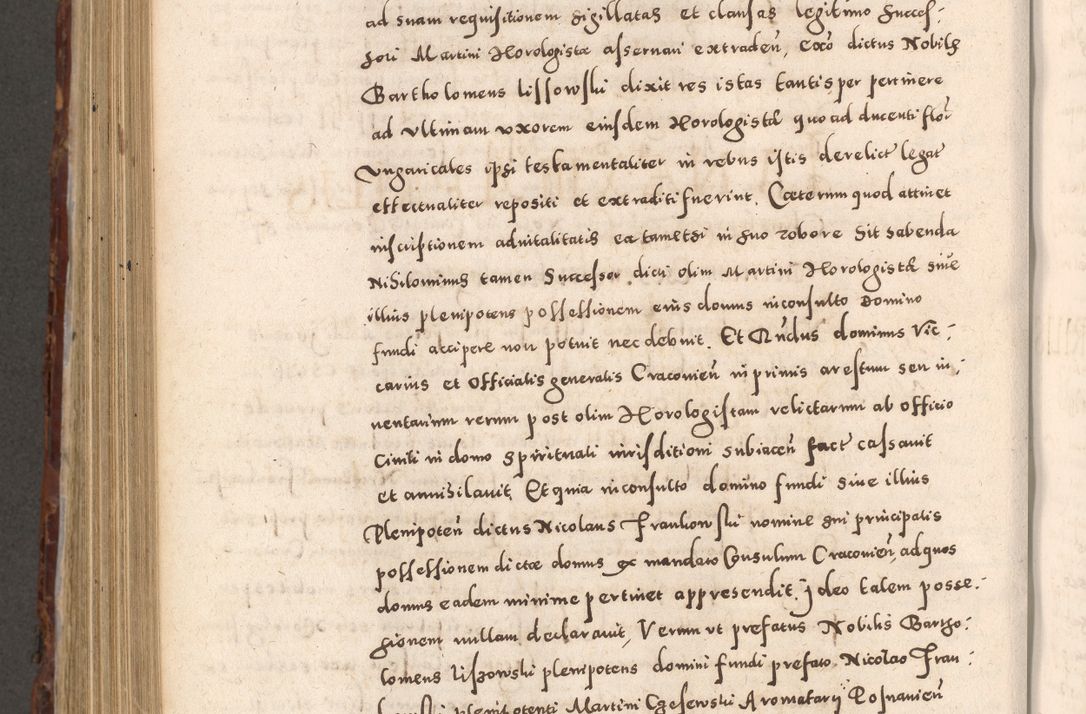 ad suam requisitionem sigillatas et clausas legitimo Succes-
sori Martini Horologistæ assernari extraden, Ex͠o dictus Nobilis
Bartholomeus lissowski dixit res istas tantisper pertinere
ad vltimam vxorem eiusdem Horologistæ quoad ducenti flor
vngaricales ipsi testamentaliter in rebus istis derelict legat
effectualiter repositi et extraditi fuerint. Cæterum quod attinet
inscriptionem aduitalitatis ea tametsi in suo robore sit habenda
Nihilominus tamen Successor dicti olim Martini Horologistæ siue
illius plenipotens possessionem eius domus inconsulto Domino
fundi accipere non potuit nec debuit. Et Rñdus dominus Vic-
carius et Officialis generalis Cracouien̄ inprimis arestum seu in-
uentarium rerum post olim Horologistam relictarum ab officio
Ciuili in domo spirituali iurisditioni subiacen̄ fact cassauit
et annihilauit, Et quia inconsulto domino fundi siue illius
Plenipoten̄ dictus Nicolaus Frankowski nomine sui principalis
possessionem dictæ domus ex mandato Consulum Cracouien̄, ad quos
domus eadem minime pertinet appræhendit. Ideo talem posse-
sionem nullam declarauit, Verum vt prefatus Nobilis Bartho-
lomeus lissowski plenipotens domini fundi prefato Nicolao Fran
kowski plenipotenti Martini Czesewski Aromatarij Posnanien̄